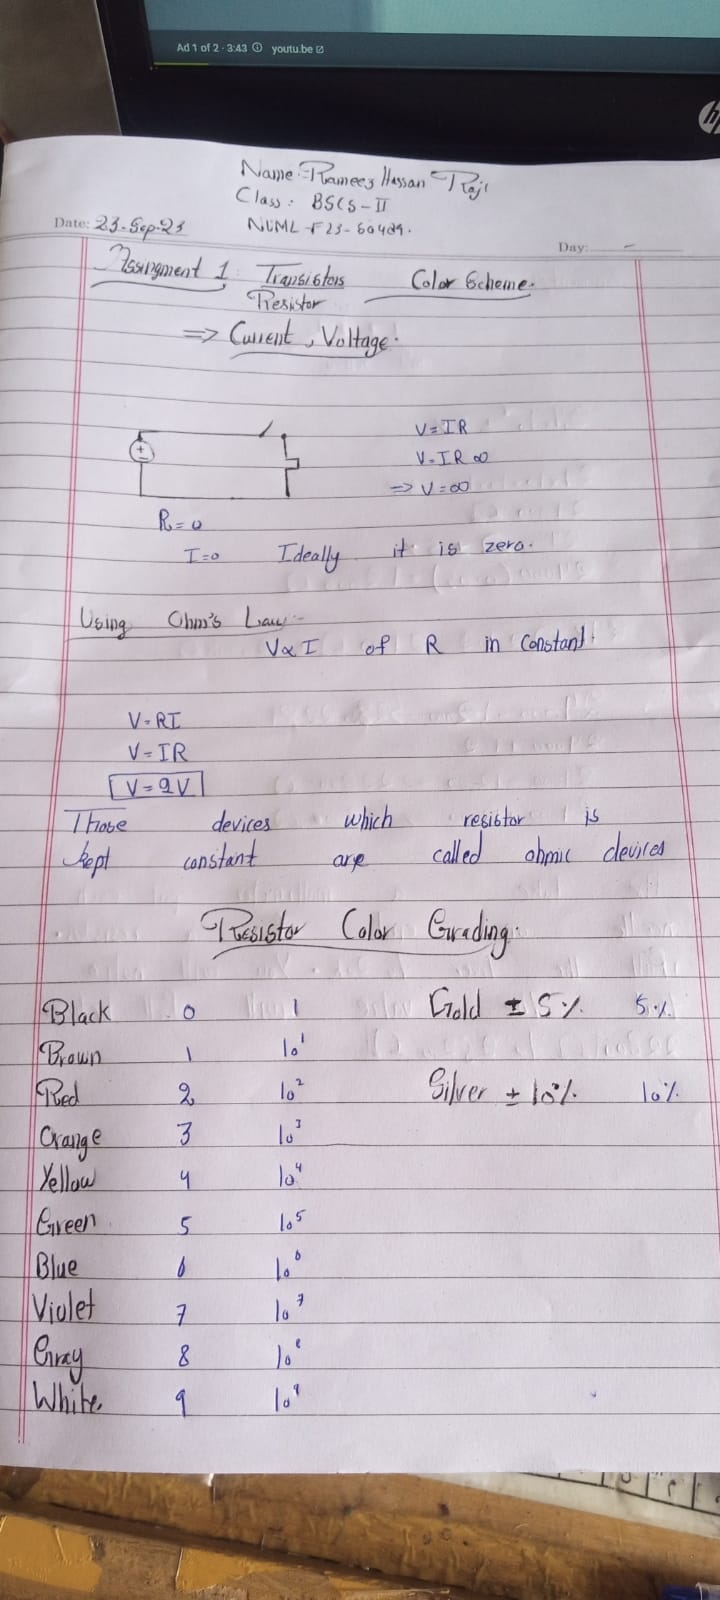 Ad 1 of 2 · 3:43 youtu.be
hp
Name: Rameez Hassan
Class: BSCS-II
Date: 23-Sep-23
NUML-F23-
Day:
Assingment 1 Transistors Color Scheme.
Resistor
=> Current, Voltage.
+
V=IR
V=IR ∞
=> V=∞
R=0
I=0 Ideally it is zero.
Using Ohm's Law:-
V∝I of R in Constant.
V=RI
V=IR
V=2V
Those devices which resistor is
kept constant are called ohmic devices
Resistor Color Grading.
Black 0 1 Gold ± 5% 5%
Brown 1 10¹
Red 2 10² Silver ± 10% 10%
Orange 3 10³
Yellow 4 10⁴
Green 5 10⁵
Blue 6 10⁶
Violet 7 10⁷
Gray 8 10⁸
White 9 10⁹